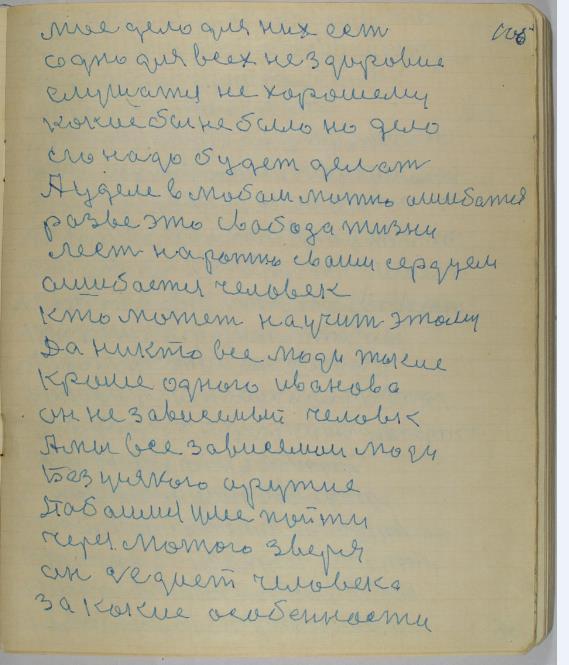 мое дело для них ест
одно для всех не здоровие
слушатя не хорошему
какие бы не было но дело
его надо будет делат
А уделе в любом можно ошибатся
разве это свобода жизни
лест на рожно сваим сердцем
ошибается человек
кто может научит этому
Да никто все люди такие
Кроме одного иванова
он не зависемый человек
А мы все зависемыи люди
Без уиякого оружие
пойти
через лютого зверя
он человека
за какие особенности